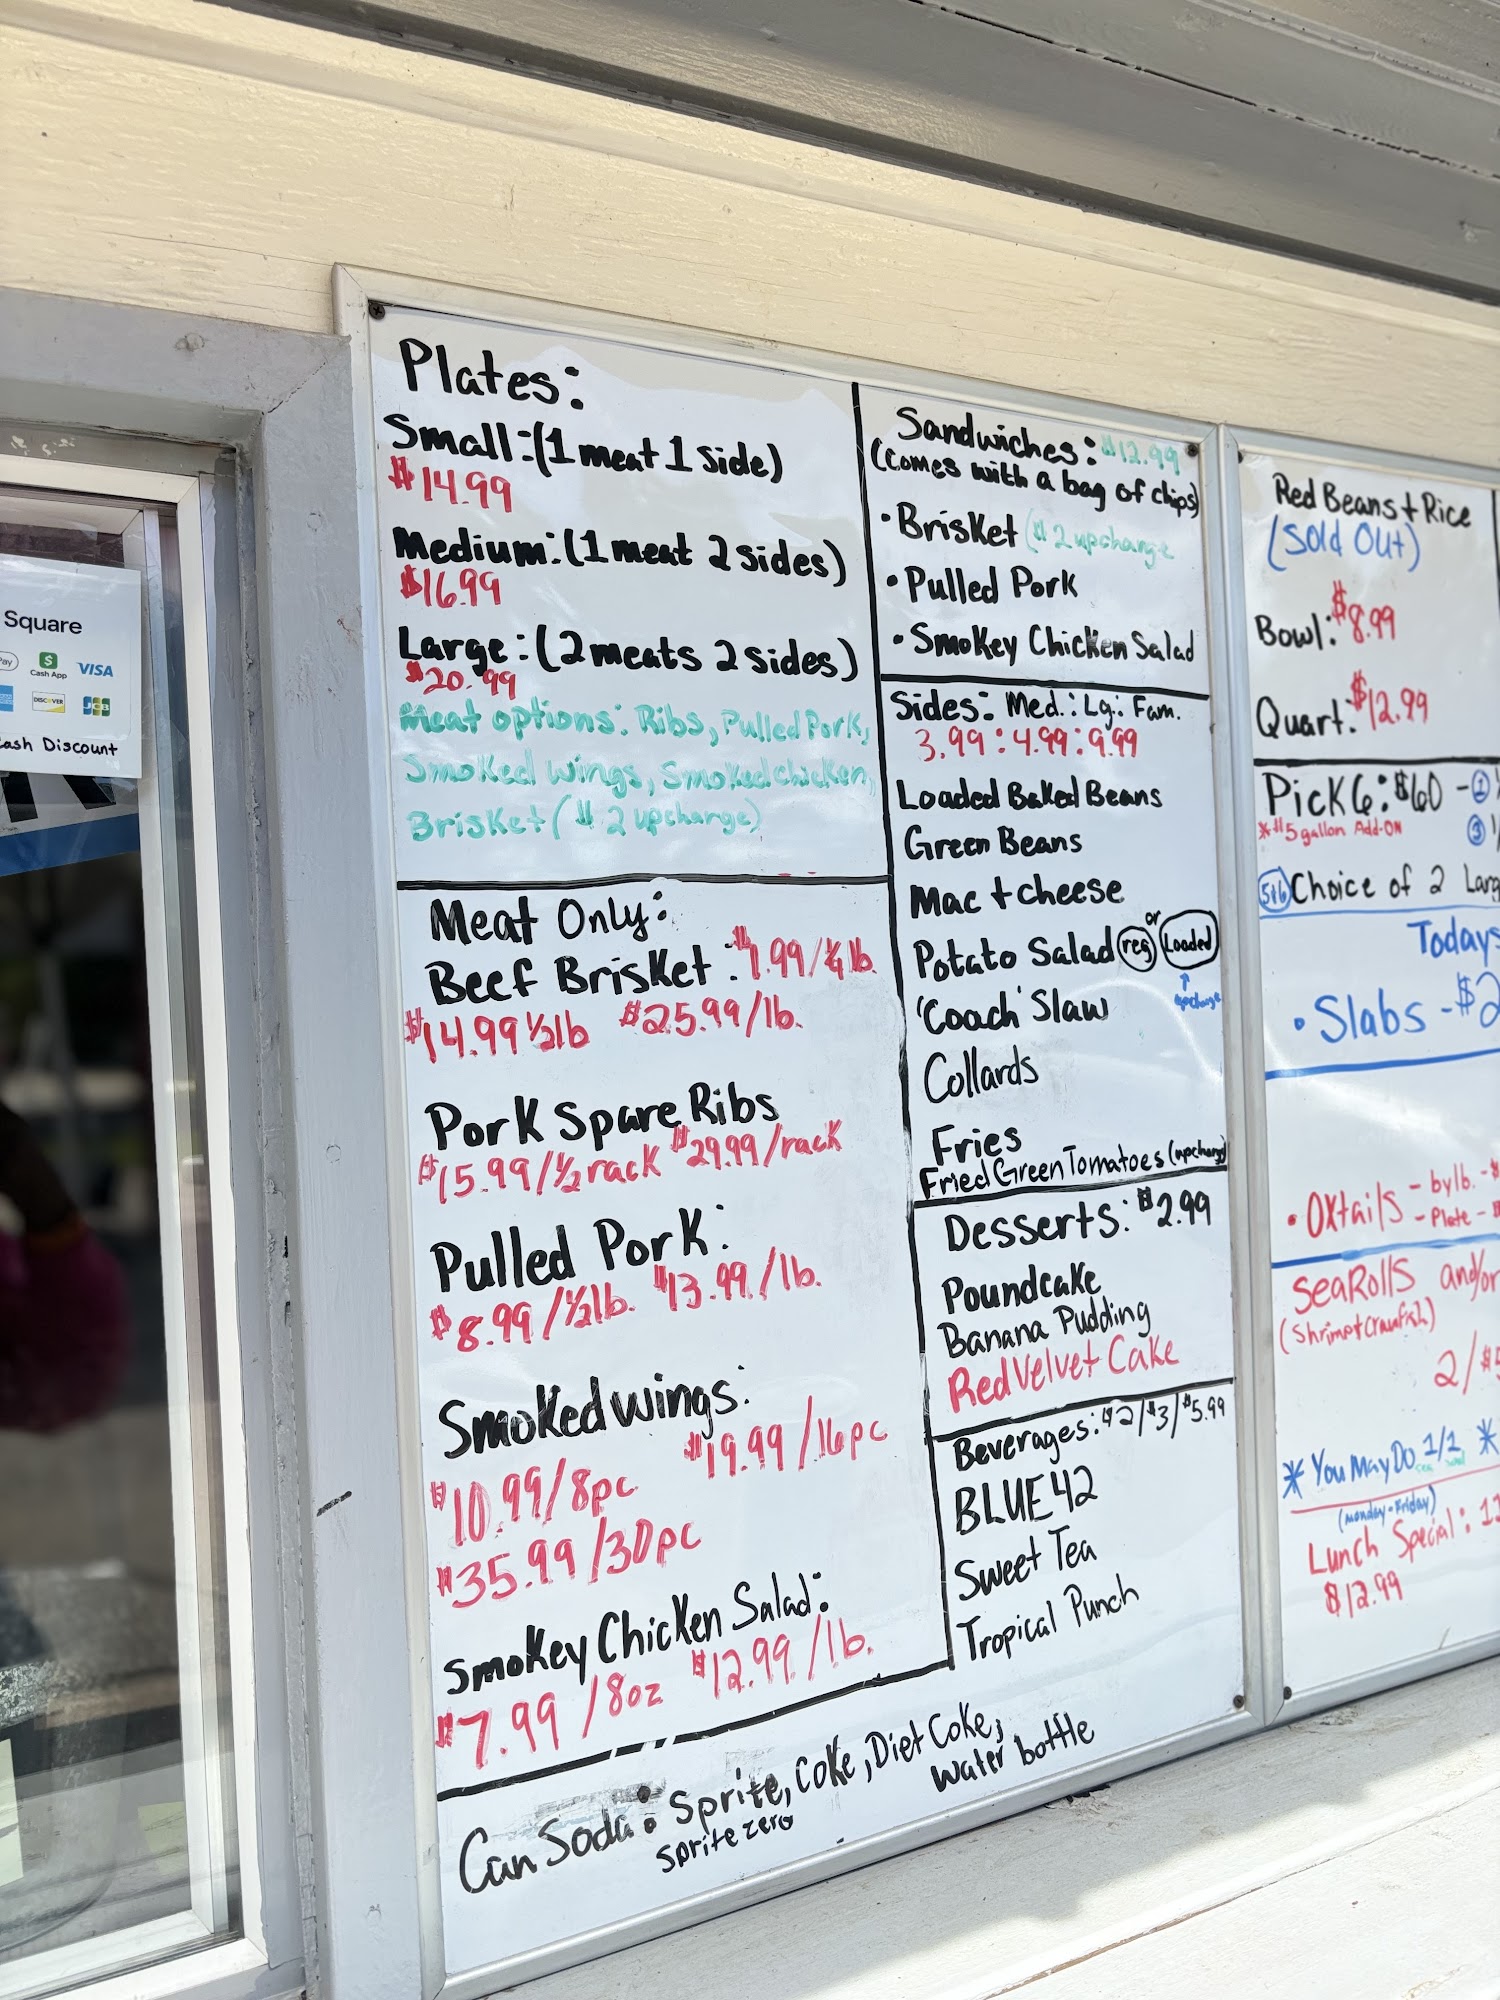 Square
Pay
Cash App
VISA
DISCOVER
JCB
Cash Discount
Plates:
Small:(1 meat 1 side)
$14.99
Medium:(1 meat 2 sides)
$16.99
Large:(2 meats 2 sides)
$20.99
Meat options: Ribs, Pulled Pork,
Smoked Wings, Smoked chicken,
Brisket ($2 upcharge)
Meat Only:
Beef Brisket: 99/¼ lb.
$14.99 ½lb $25.99/lb.
Pork Spare Ribs
$15.99/½ rack $29.99/rack
Pulled Pork:
$8.99/½lb. $13.99/lb.
Smoked wings:
$10.99/8pc $19.99/16pc
$35.99/30pc
Smokey Chicken Salad:
$7.99/8oz $12.99/lb.
Can Soda: Sprite, Coke, Diet Coke,
sprite zero water bottle
Sandwiches: $12.99
(comes with a bag of chips)
•Brisket ($2 upcharge
•Pulled Pork
•Smokey Chicken Salad
Sides: Med.: Lg.: Fam.
3.99:4.99:9.99
Loaded Baked Beans
Green Beans
Mac + cheese
Potato Salad reg or Loaded
upcharge
'Coach' Slaw
Collards
Fries
Fried Green Tomatoes (upcharge)
Desserts: $2.99
Poundcake
Banana Pudding
Red Velvet Cake
Beverages: $2/$3/$5.99
BLUE 42
Sweet Tea
Tropical Punch
Red Beans + Rice
(Sold Out)
Bowl: $8.99
Quart: $12.99
Pick 6: $60 - 1
*$5 gallon Add-ON 3
5+6 Choice of 2 Larg
Todays
• Slabs - $2
• Oxtails - by lb. - $
- Plate - $
SeaRolls and/or
(Shrimp+Crawfish)
2/$5
* You May Do 1/1 *
(Monday-Friday)
Lunch Special: 11
$12.99